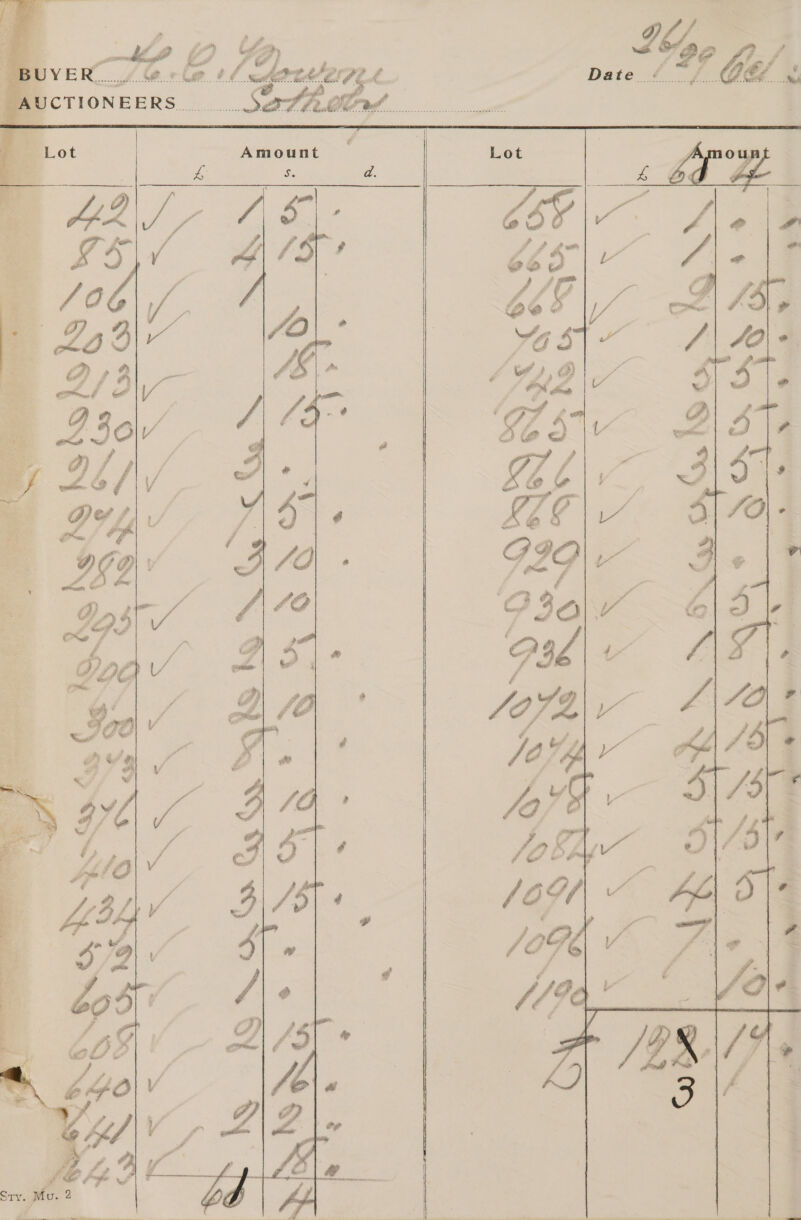 BUYER
Date
AUCTIONEERS Sotheby
Lot Amount £ s. d.
42 ✓ 1 5 .
85 ✓ 4 15 .
106 ✓ 1
203 ✓ 10 .
213 ✓ 18 .
230 ✓ 1 15 .
261 ✓ 3 . .
274 ✓ 7 5 .
282 ✓ 3 10 .
295 ✓ 1 10
299 ✓ 2 5 .
300 ✓ 2 10 .
373 ✓ 8 . .
376 ✓ 3 10 .
410 ✓ 3 5 .
434 ✓ 3 15 .
572 ✓ 5 . .
605 ✓ 1 . .
608 ✓ 2 15 .
640 ✓ 16 .
641 ✓ 2 2 .
643 ✓ 18 .
Sty. Mu. 2
61 4
Lot Amount £ s. d.
61 4
658 ✓ 1 . .
665 ✓ 1 . .
668 ✓ 2 15 .
705 ✓ 1 10 .
722 ✓ 5 5 .
865 ✓ 2 5 .
866 ✓ 3 5 .
868 ✓ 5 10 .
929 ✓ 3 . .
930 ✓ 6 5 .
936 ✓ 1 8 .
1072 ✓ 1 10 .
1074 ✓ 4 15 .
1078 ✓ 5 15 .
1084 ✓ 5 15 .
1091 ✓ 4 5 .
1096 ✓ 7 . .
1190 ✓ 10 .
£ 12 17 .
3